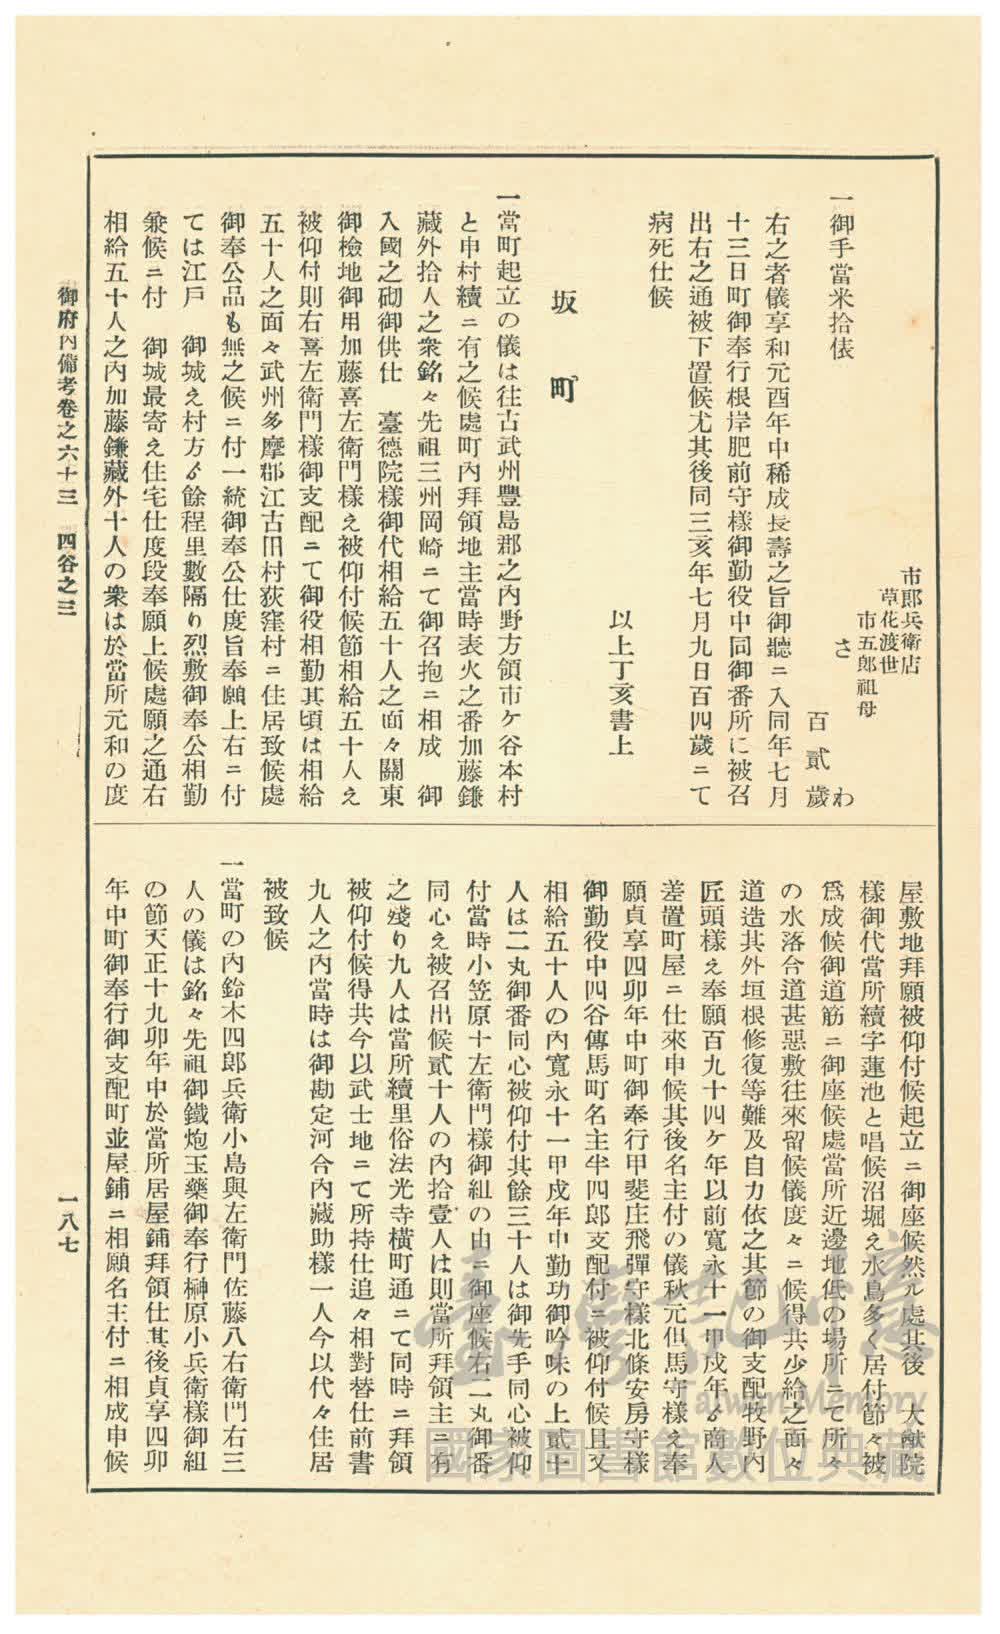 市郎兵衞店
草花渡世
市五郎祖母
さわ
百貳歲
一御手當米拾俵
右之者儀享和元酉年中稀成長壽之旨御聽ニ入同年七月
十三日町御奉行根岸肥前守樣御勤役中同御番所に被召
出右之通被下置候尤其後同三亥年七月九日百四歲ニて
病死仕候
以上丁亥書上
坂町
一當町起立の儀は往古武州豐島郡之內野方領市ケ谷本村
と申村續ニ有之候處町內拜領地主當時表火之番加藤鎌
藏外拾人之衆銘々先祖三州岡崎ニて御召抱ニ相成　御
入國之砌御供仕　臺德院樣御代相給五十人之面々關東
御檢地御用加藤喜左衞門樣え被仰付候節相給五十人え
被仰付則右喜左衞門樣御支配ニて御役相勤其頃は相給
五十人之面々武州多摩郡江古田村荻窪村ニ住居致候處
御奉公品も無之候ニ付一統御奉公仕度旨奉願上右ニ付
ては江戶　御城え村方ゟ餘程里數隔り烈敷御奉公相勤
兼候ニ付　御城最寄え住宅仕度段奉願上候處願之通右
相給五十人之內加藤鎌藏外十人の衆は於當所元和の度
屋敷地拜願被仰付候起立ニ御座候然ル處其後　大猷院
樣御代當所續字蓮池と唱候沼堀え水鳥多く居付節々被
爲成候御道筋ニ御座候處當所近邊地低の場所ニて所々
の水落合道甚惡敷往來留候儀度々ニ候得共少給之面々
道造其外垣根修復等難及自力依之其節の御支配牧野內
匠頭樣え奉願百九十四ケ年以前寬永十一甲戌年ゟ商人
差置町屋ニ仕來申候其後名主付の儀秋元但馬守樣え奉
願貞享四卯年中町御奉行甲斐庄飛彈守樣北條安房守樣
御勤役中四谷傳馬町名主半四郎支配付ニ被仰付候且又
相給五十人の內寬永十一甲戌年中勤功御吟味の上貳十
人は二丸御番同心被仰付其餘三十人は御先手同心被仰
付當時小笠原十左衞門樣御組の由ニ御座候右二丸御番
同心え被召出候貳十人の內拾壹人は則當所拜領主ニ有
之殘り九人は當所續里俗法光寺橫町通ニて同時ニ拜領
被仰付候得共今以武士地ニて所持仕追々相對替仕前書
九人之內當時は御勘定河合內藏助樣一人今以代々住居
被致候
一當町の內鈴木四郎兵衞小島與左衞門佐藤八右衞門右三
人の儀は銘々先祖御鐵炮玉藥御奉行榊原小兵衞樣御組
の節天正十九卯年中於當所居屋鋪拜領仕其後貞享四卯
年中町御奉行御支配町並屋鋪ニ相願名主付ニ相成申候
御府內備考卷之六十三　四谷之三
一八七
臺灣記憶
Taiwan Memory
國家圖書館數位典藏